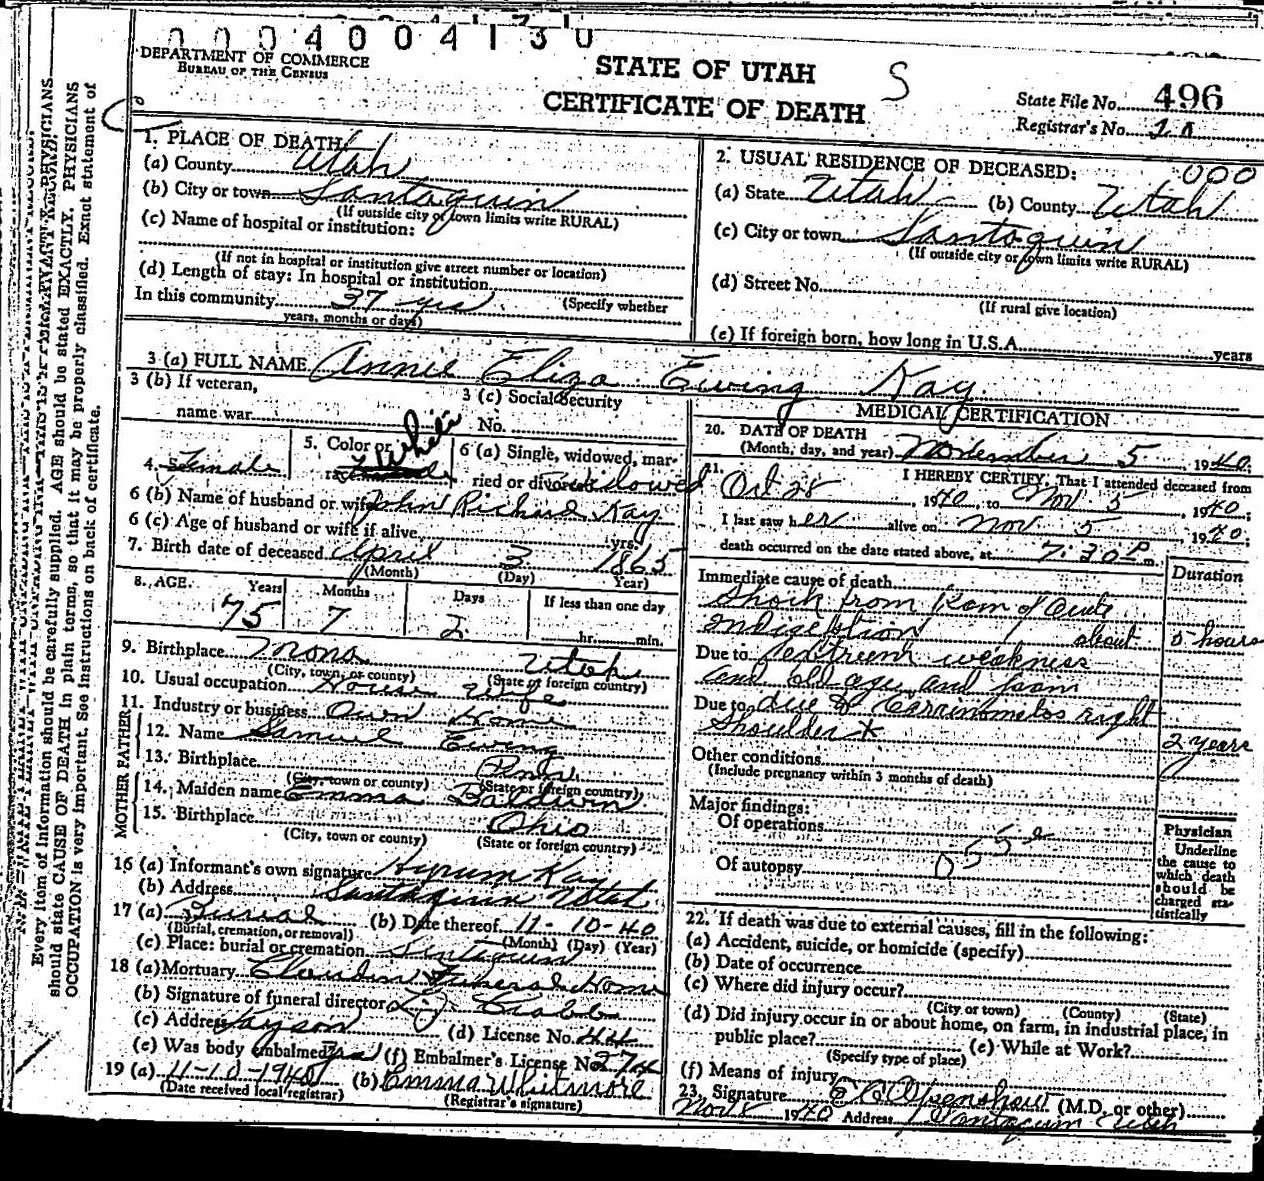 0004004130
DEPARTMENT OF COMMERCE
BUREAU OF THE CENSUS
STATE OF UTAH
CERTIFICATE OF DEATH
S
State File No. 496
Registrar's No.
1. PLACE OF DEATH
(a) County Utah
(b) City or town Santaquin
(If outside city or town limits write RURAL)
(c) Name of hospital or institution:
(If not in hospital or institution give street number or location)
(d) Length of stay: In hospital or institution
In this community 37 yrs (Specify whether
years, months or days)
2. USUAL RESIDENCE OF DECEASED: 000
(a) State Utah (b) County Utah
(c) City or town Santaquin
(If outside city or town limits write RURAL)
(d) Street No.
(If rural give location)
(e) If foreign born, how long in U.S.A. years
3 (a) FULL NAME Annie Eliza Ewing Kay
3 (b) If veteran,
name war
3 (c) Social Security
No.
4. Sex Female
5. Color or White
race
6 (a) Single, widowed, mar-
ried or divorced Widowed
6 (b) Name of husband or wife John Richard Kay
6 (c) Age of husband or wife if alive yrs.
7. Birth date of deceased April 3 1865
(Month) (Day) Year)
8. AGE. Years Months Days If less than one day
75 7 2 hr. min.
9. Birthplace Mona Utah
(City, town, or county) (State or foreign country)
10. Usual occupation House Wife
11. Industry or business Own Home
FATHER
12. Name Samuel Ewing
13. Birthplace Penn
(City, town or county) (State or foreign country)
MOTHER
14. Maiden name Emma Baldwin
15. Birthplace Ohio
(City, town or county) (State or foreign country)
16 (a) Informant's own signature Hyrum Kay
(b) Address Santaquin Utah
17 (a) Burial (b) Date thereof 11-10-40
(Burial, cremation, or removal) (Month) (Day) (Year)
(c) Place: burial or cremation Santaquin
18 (a) Mortuary Funeral Home
(b) Signature of funeral director
(c) Address Payson (d) License No. 44
(e) Was body embalmed yes (f) Embalmer's License No. 274
19 (a) 11-10-1940 (b) Emma Whitmore
(Date received local registrar) (Registrar's signature)
MEDICAL CERTIFICATION
20. DATE OF DEATH
(Month, day, and year) November 5 1940
21. I HEREBY CERTIFY, That I attended deceased from
Oct 28, 1940, to Nov 5, 1940;
I last saw her alive on Nov 5, 1940;
death occurred on the date stated above, at 7:30 P m.
Duration
Immediate cause of death
Shock from of Acute
Indigestion about hours
Due to extreem weakness
and old age and from
Due to due of right
Shoulder 2 years
Other conditions
(Include pregnancy within 3 months of death)
Major findings:
Of operations
Of autopsy
Physician
Underline
the cause to
which death
should be
charged sta-
tistically
22. If death was due to external causes, fill in the following:
(a) Accident, suicide, or homicide (specify)
(b) Date of occurrence
(c) Where did injury occur?
(City or town) (County) (State)
(d) Did injury occur in or about home, on farm, in industrial place, in
public place? (e) While at Work?
(Specify type of place)
(f) Means of injury
23. Signature Openshaw (M.D. or other)
Nov 8 1940 Address Santaquin Utah
Every item of information should be carefully supplied. AGE should be stated EXACTLY. PHYSICIANS
should state CAUSE OF DEATH in plain terms, so that it may be properly classified. Exact statement of
OCCUPATION is very important. See instructions on back of certificate.